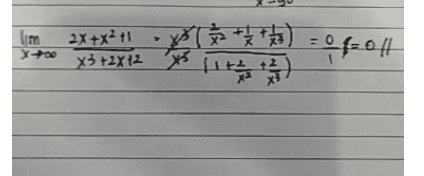 lim x→∞ (2x+x²+1)/(x3+2x+2) = x³(2/x² + 1/x + 1/x³)/x³(1+2/x²+2/x³) = 0/1 = 0 //